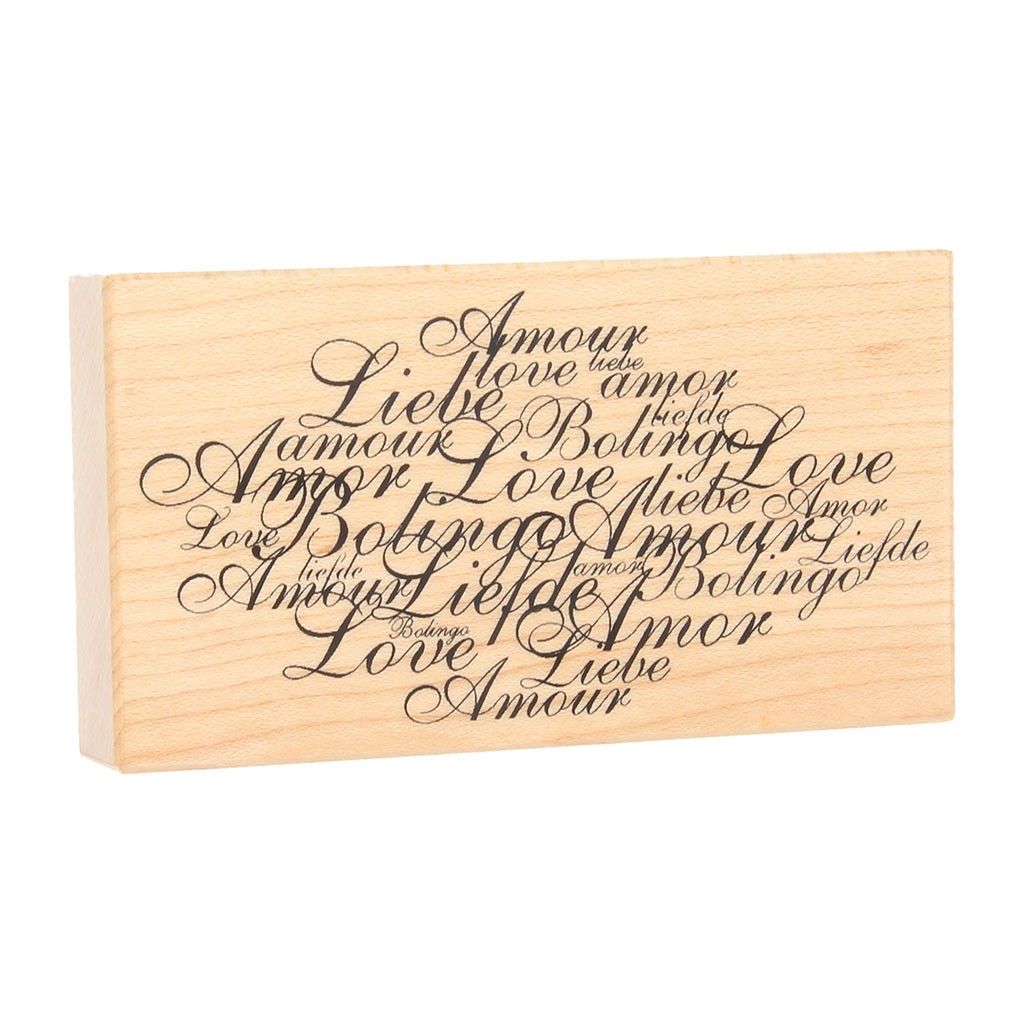 Amour
love liebe
Liebe amor
liefde
amour Bolingo Love
Amor Love
liebe Amor
Love Bolingo Amour Liefde
liefde amor
Amour Liefde Bolingo
Bolingo Amor
Love Liebe
Amour